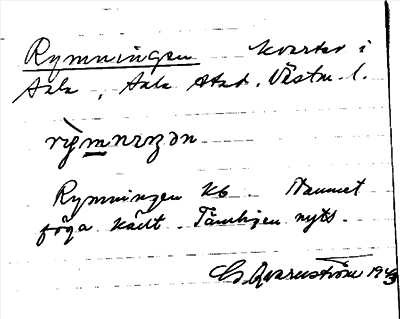 Rymningen kvarter i
Sala, Sala stad. Västm. l.
rỳmnɪŋən
Rymningen kb. Namnet
föga känt. Tämligen nytt.
G. Qvarnström 1943